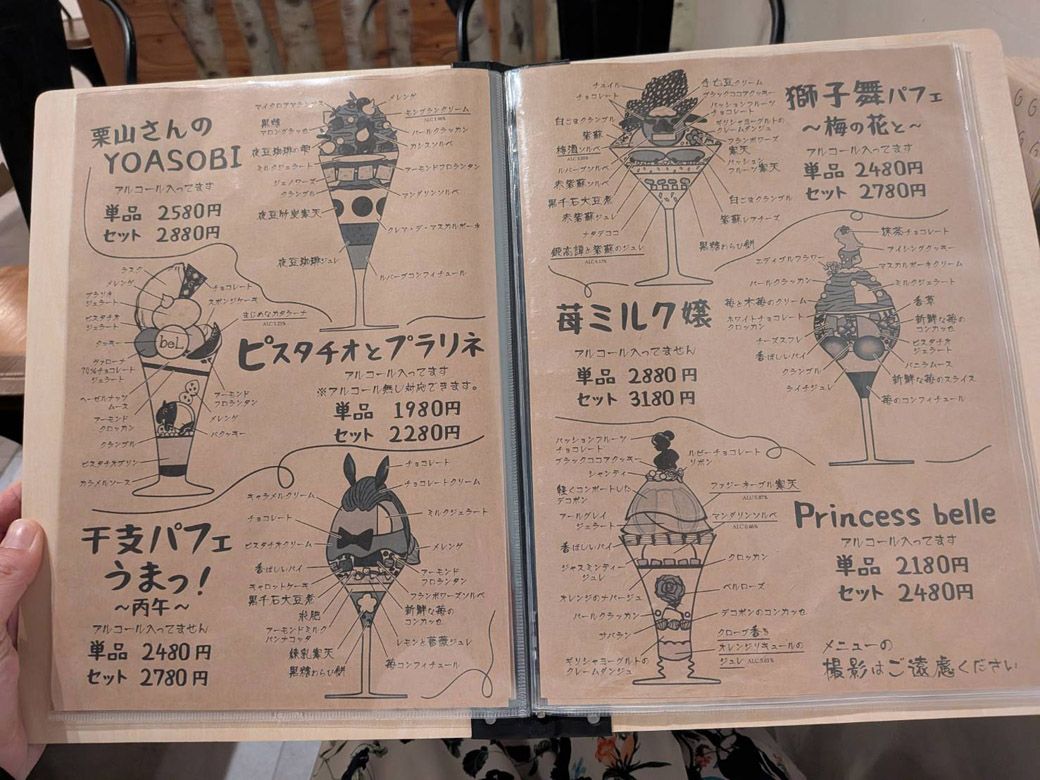 栗山さんの
YOASOBI
アルコール入ってます
単品 2580円
セット 2880円
マイクロアマランサス
黒糖
マロングラッセ
夜豆珈琲の雫
ミルクジェラート
ジェノワーズ
クランブル
夜豆珈琲ジュレ
メレンゲ
モンブランクリーム
パールクラッカン
カシスソルベ
アーモンドフロランタン
マンダリンソルベ
クレメ・デ・マスカルポーネ
ルバーブコンフィチュール
ラスク
メレンゲ
プラリネ
ジェラート
ピスタチオ
ジェラート
クッキー
ヴァローナ
70%チョコレート
ジェラート
ヘーゼルナッツ
ムース
アーモンド
クロッカン
クランブル
ピスタチオプリン
カラメルソース
チョコレート
スポンジケーキ
まじめなカタラーナ
beL
アーモンド
フロランタン
メレンゲ
パクッキー
ピスタチオとプラリネ
アルコール入ってます
※アルコール無し対応できます。
単品 1980円
セット 2280円
干支パフェ
うまっ!
~丙午~
アルコール入ってません
単品 2480円
セット 2780円
キャラメルクリーム
チョコレート
ピスタチオクリーム
香ばしいパイ
キャロットケーキ
黒千石大豆煮
求肥
アーモンドミルク
パンナコッタ
練乳寒天
黒糖わらび餅
チョコレート
チョコレートクリーム
ミルクジェラート
メレンゲ
アーモンド
フロランタン
フランボワーズソルベ
新鮮な苺の
コンカッセ
レモンと薔薇ジュレ
苺コンフィチュール
獅子舞パフェ
~梅の花と~
単品 2480円
セット 2780円
チュイル
チョコレート
白ごまクランブル
紫蘇
梅酒ソルベ
ルバーブソルベ
赤紫蘇ソルベ
黒千石大豆煮
赤紫蘇ジュレ
ナタデココ
鍛高譚と紫蘇のジュレ
手亡豆クリーム
ブラックココアクッキー
パッションフルーツ
チョコレート
ギリシャヨーグルトの
クレームダンジュ
フランボワーズ
寒天
パッション
フルーツ寒天
白ごまクランブル
紫蘇レアチーズ
黒糖わらび餅
苺ミルク嬢
アルコール入ってません
単品 2880円
セット 3180円
エディブルフラワー
パールクラッカン
苺と木苺のクリーム
ホワイトチョコレート
クロッカン
チーズスフレ
香ばしいパイ
クランブル
ライチジュレ
抹茶チョコレート
アイシングクッキー
マスカルポーネクリーム
ミルクジェラート
香草
新鮮な苺の
コンカッセ
ピスタチオ
ジェラート
バニラムース
新鮮な苺のスライス
苺のコンフィチュール
Princess belle
アルコール入ってます
単品 2180円
セット 2480円
パッションフルーツ
チョコレート
ブラックココアクッキー
シャンティ
軽くコンポートした
デコポン
アールグレイ
ジェラート
香ばしいパイ
ジャスミンティー
ジュレ
オレンジのナパージュ
パールクラッカン
サバラン
ギリシャヨーグルトの
クレームダンジュ
ルビーチョコレート
リボン
ファジーネーブル寒天
マンダリンソルベ
クロッカン
ベルローズ
デコポンのコンカッセ
クローブ香る
オレンジリキュールの
ジュレ
メニューの
撮影はご遠慮ください